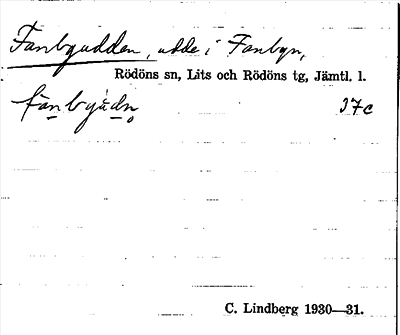 Fanbyudden, udde i Fanbyn,
Rödöns sn, Lits och Rödöns tg, Jämtl. l.
fanbyùdn̥ 37c
C. Lindberg 1930—31.